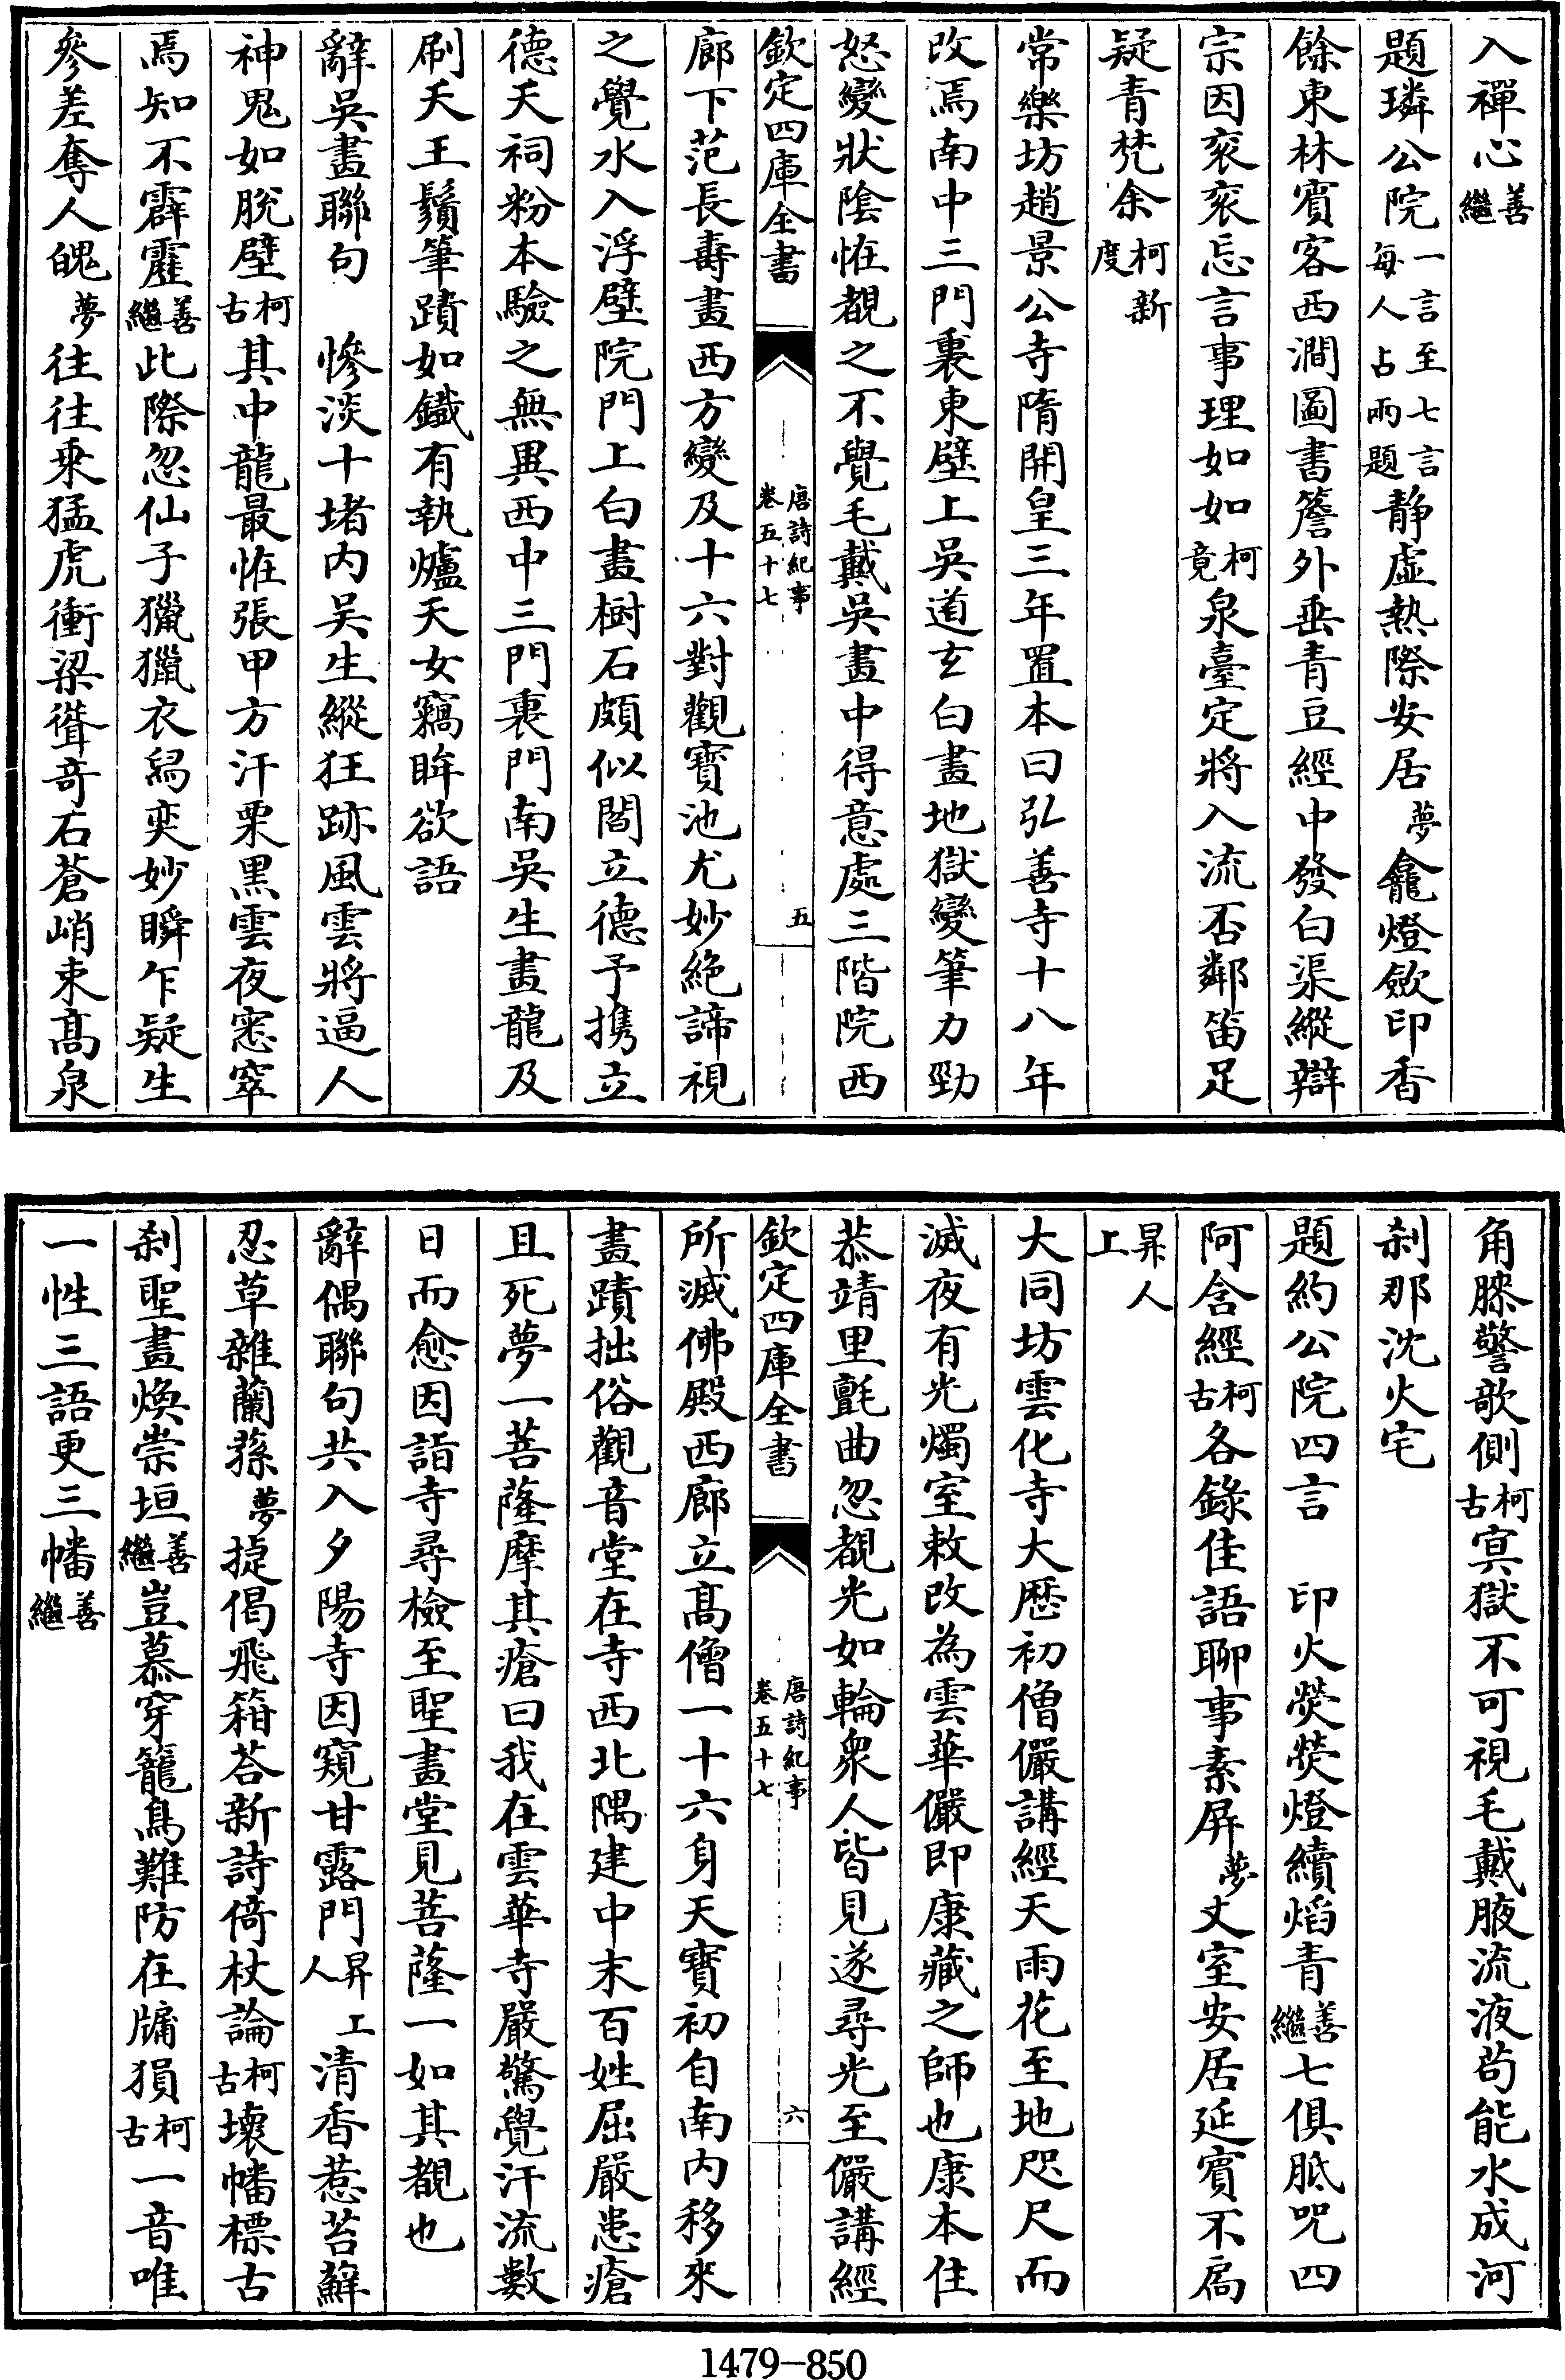 入禪心善繼
題璘公院一言至七言每人占兩題靜虛熱際安居夢龕燈歛印香
餘東林賓客西澗圖書簷外垂青豆經中發白渠縱辯
宗因衮衮忘言事理如如柯竟泉臺定將入流否鄰笛足
疑青梵余柯新度
常樂坊趙景公寺隋開皇三年置本曰弘善寺十八年
改焉南中三門裏東壁上吳道玄白畫地獄變筆力勁
怒變狀陰恠覩之不覺毛戴吳畫中得意處三階院西
欽定四庫全書 唐詩紀事卷五十七 五
廊下范長壽畫西方變及十六對觀寶池尤妙絶諦視
之覺水入浮壁院門上白畫樹石頗似閻立德予攜立
德天祠粉本驗之無異西中三門裏門南吳生畫龍及
刷天王鬚筆蹟如鐵有執爐天女竊眸欲語
辭吳畫聯句 慘淡十堵內吳生縱狂跡風雲將逼人
神鬼如脫壁柯古其中龍最恠張甲方汗栗黑雲夜窸窣
焉知不霹靂善繼此際忽仙子獵獵衣舄奕妙瞬乍疑生
參差奪人魄夢往往乘猛虎衝梁聳奇石蒼峭束高泉
角膝警欹側柯古冥獄不可視毛戴腋流液苟能水成河
刹那沈火宅
題約公院四言 印火熒熒燈續焰青善繼七俱胝咒四
阿含經柯古各錄佳語聊事素屏夢丈室安居延賓不扃
昇上人
大同坊雲化寺大歷初僧儼講經天雨花至地咫尺而
滅夜有光燭室敕改為雲華儼即康藏之師也康本住
恭靖里氈曲忽覩光如輪衆人皆見遂尋光至儼講經
欽定四庫全書 唐詩紀事卷五十七 六
所滅佛殿西廊立高僧一十六身天寶初自南內移來
畫蹟拙俗觀音堂在寺西北隅建中末百姓屈嚴患瘡
且死夢一菩薩摩其瘡曰我在雲華寺嚴驚覺汗流數
日而愈因詣寺尋檢至聖畫堂見菩薩一如其覩也
辭偶聯句共入夕陽寺因窺甘露門昇上人清香惹苔蘚
忍草雜蘭蓀夢捷偈飛箱荅新詩倚杖論柯古壞幡標古
刹聖畫煥崇垣善繼豈慕穿籠鳥難防在牖猨柯古一音唯
一性三語更三幡善繼
1479-850